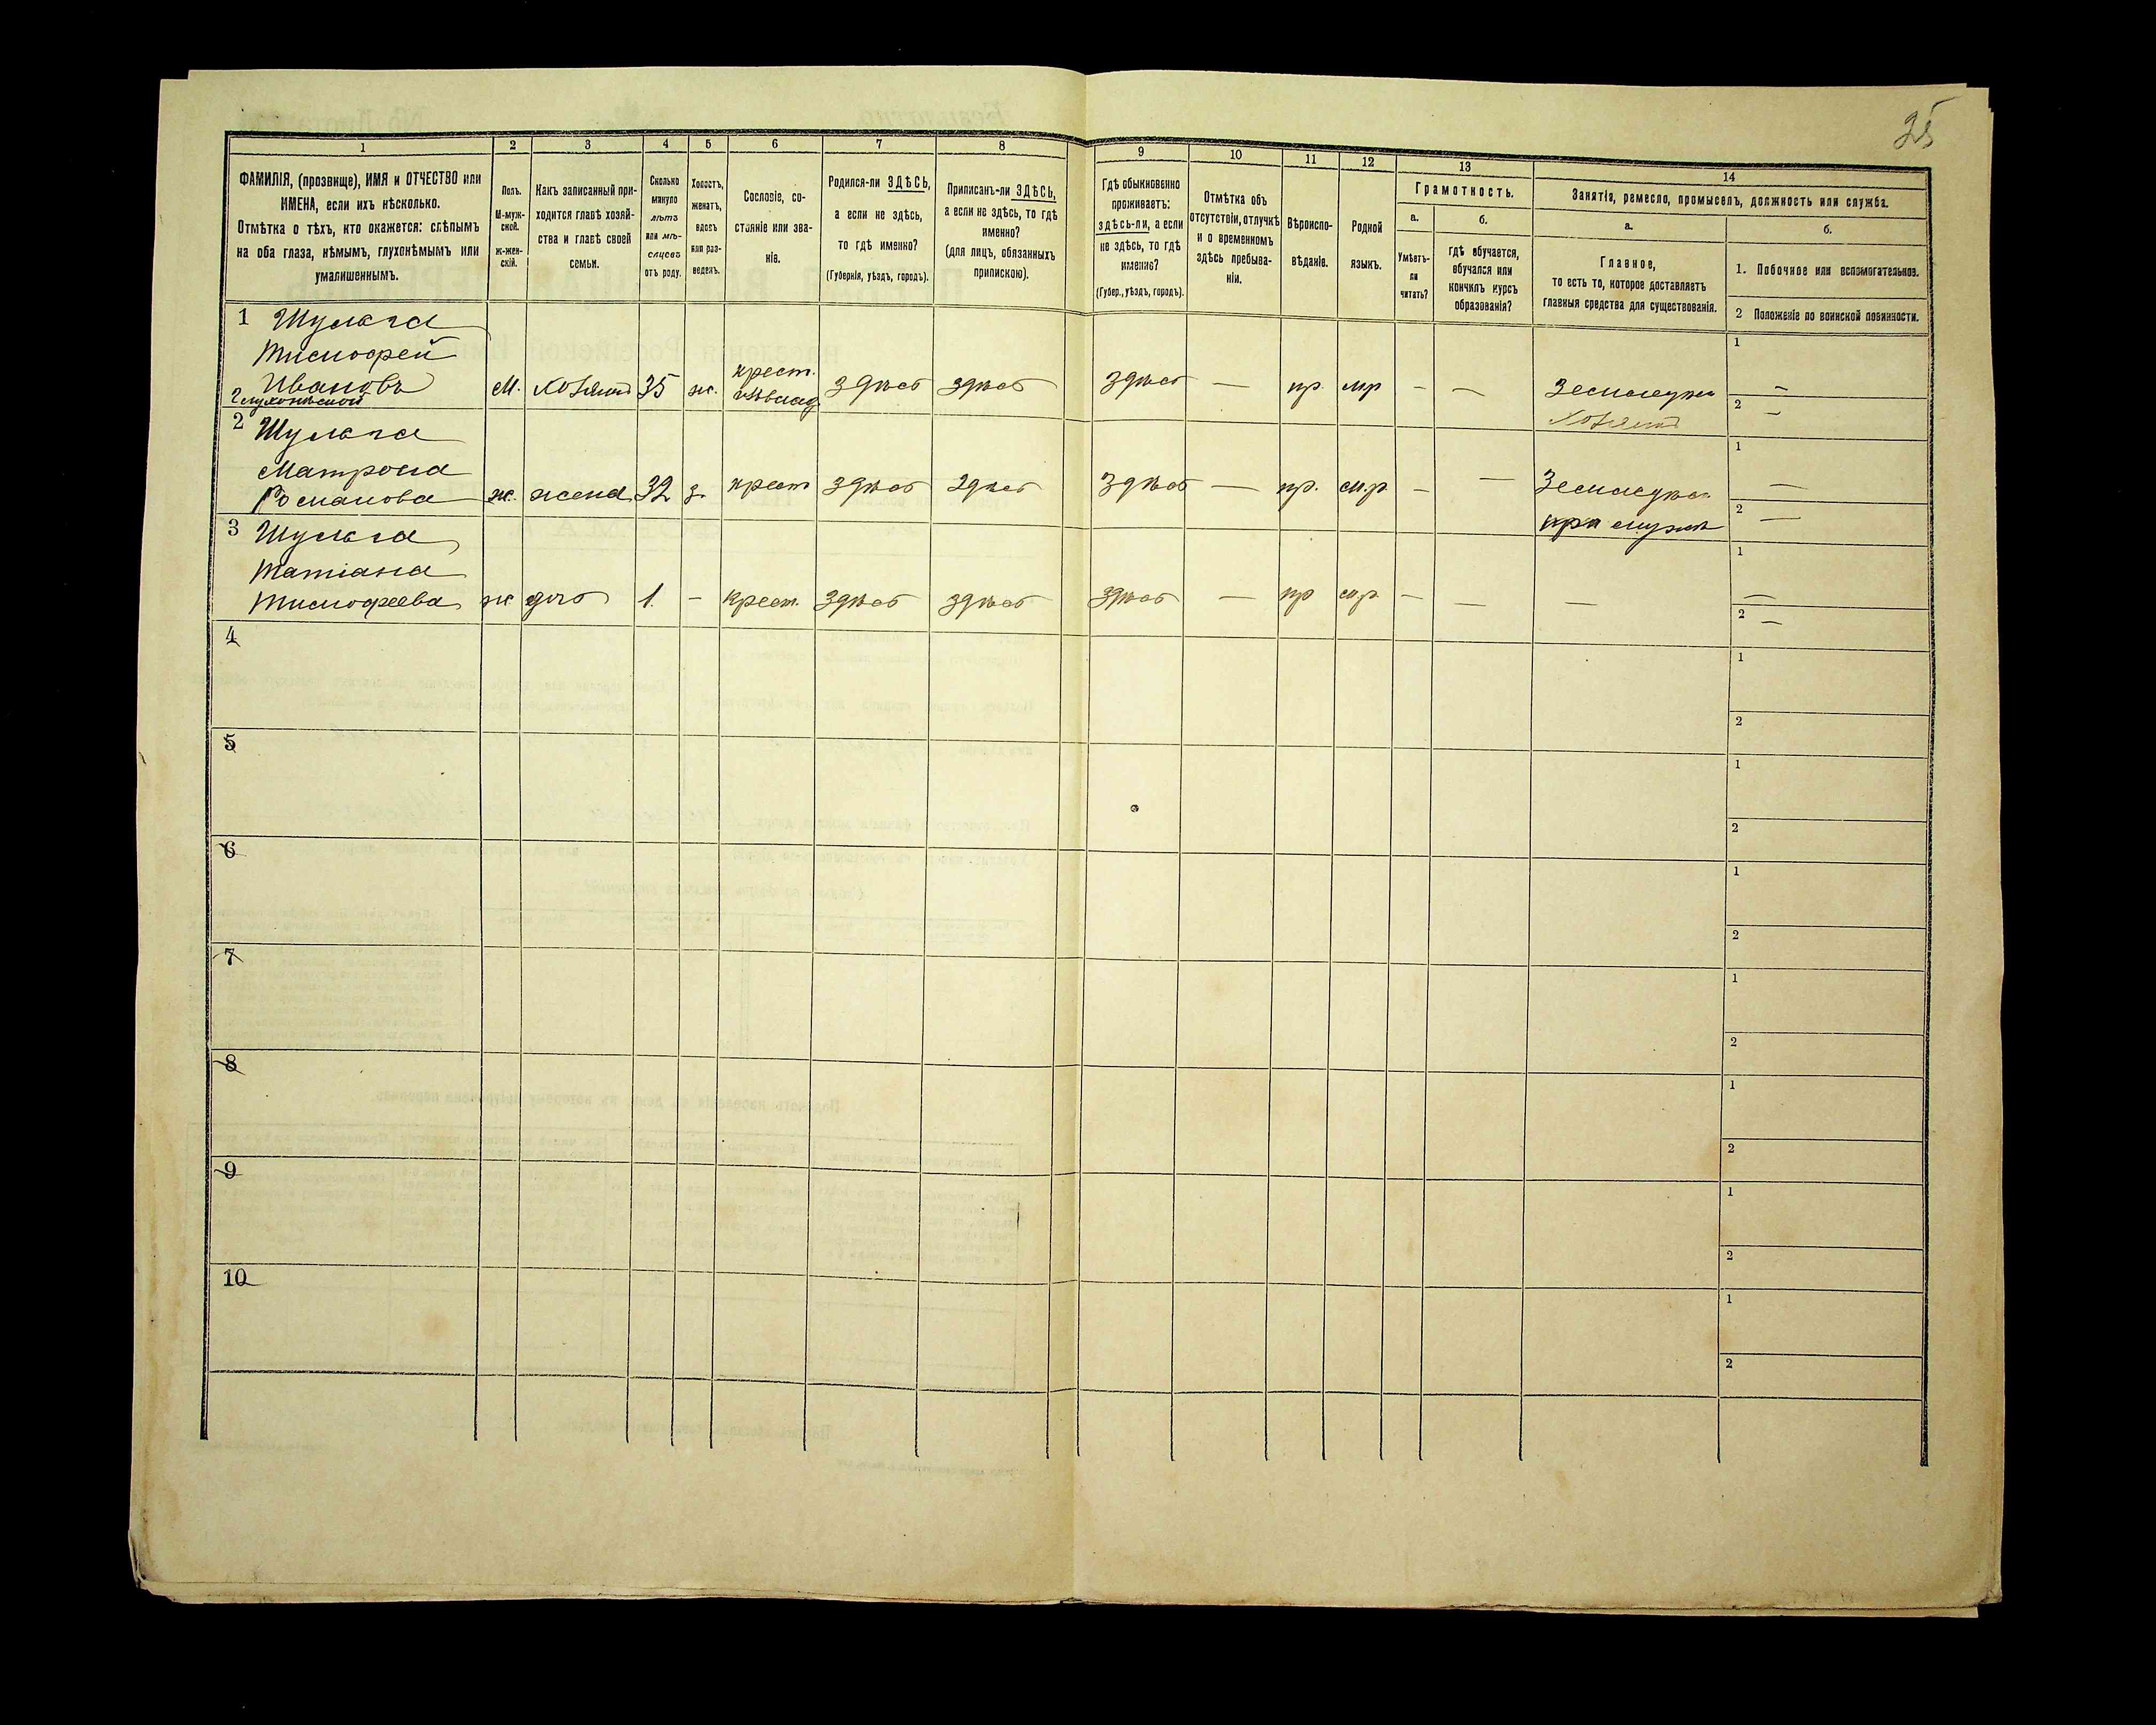 25
1
2
3
4
5
6
7
8
9
10
11
12
13
14
ФАМИЛІЯ, (прозвище), ИМЯ и ОТЧЕСТВО или
ИМЕНА, если ихъ нѣсколько.
Отмѣтка о тѣхъ, кто окажется: слѣпымъ
на оба глаза, нѣмымъ, глухонѣмымъ или
умалишеннымъ.
Полъ.
М-муж-
ской.
ж-жен-
скій.
Какъ записанный при-
ходится главѣ хозяй-
ства и главѣ своей
семьи.
Сколько
минуло
лѣтъ
или мѣ-
сяцевъ
отъ роду.
Холостъ,
женатъ,
вдовъ
или раз-
веденъ.
Сословіе, со-
стояніе или зва-
ніе.
Родился-ли ЗДѢСЬ,
а если не здѣсь,
то гдѣ именно?
(Губернія, уѣздъ, городъ).
Приписанъ-ли ЗДѢСЬ,
а если не здѣсь, то гдѣ
именно?
(для лицъ, обязанныхъ
припискою).
Гдѣ обыкновенно
проживаетъ:
здѣсь-ли, а если
не здѣсь, то гдѣ
именно?
(Губер., уѣздъ, городъ).
Отмѣтка объ
отсутствіи, отлучкѣ
и о временномъ
здѣсь пребыва-
ніи.
Вѣроиспо-
вѣданіе.
Родной
языкъ.
Грамотность.
а.
Умѣетъ-
ли
читать?
б.
гдѣ обучается,
обучался или
кончилъ курсъ
образованія?
Занятія, ремесло, промыселъ, должность или служба.
а.
Главное,
то есть то, которое доставляетъ
главныя средства для существованія.
б.
1. Побочное или вспомогательное.
2 Положеніе по воинской повинности.
1 Шульга
Тимофей
Ивановъ
глухонѣмой
М. хозяинъ 35 ж. крест. здѣсь здѣсь здѣсь — пр. мр — —
хозяинъ
1 —
2 —
2 Шульга
Матрона
Романова ж. жена 32 з. крест здѣсь здѣсь здѣсь — пр. м.р — —
при мужѣ
1 —
2 —
3 Шульга
Татіана
Тимофеева ж дочь 1. — крест. здѣсь здѣсь здѣсь — пр м.р — — —
1 —
2 —
4
1
2
5
1
2
6
1
2
7
1
2
8
1
2
9
1
2
10
1
2